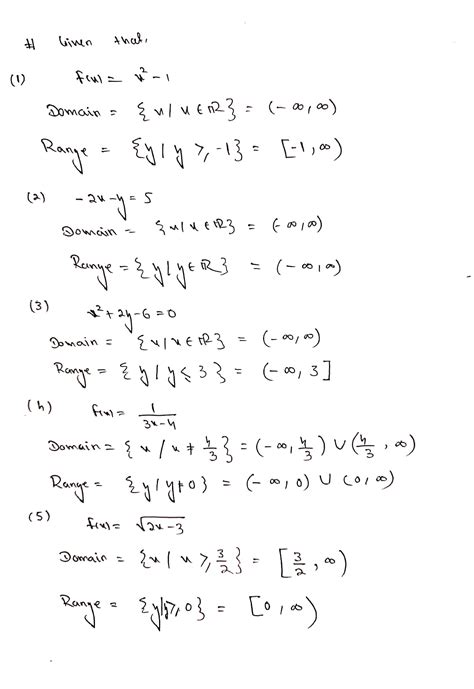 # Given that,
(1) f(x) = x² - 1
Domain = {x / x ∈ ℝ} = (-∞, ∞)
Range = {y / y ≥ -1} = [-1, ∞)
(2) -2x - y = 5
Domain = {x / x ∈ ℝ} = (-∞, ∞)
Range = {y / y ∈ ℝ} = (-∞, ∞)
(3) x² + 2y - 6 = 0
Domain = {x / x ∈ ℝ} = (-∞, ∞)
Range = {y / y ≤ 3} = (-∞, 3]
(4) f(x) = 1/(3x-4)
Domain = {x / x ≠ 4/3} = (-∞, 4/3) ∪ (4/3, ∞)
Range = {y / y ≠ 0} = (-∞, 0) ∪ (0, ∞)
(5) f(x) = √(2x-3)
Domain = {x / x ≥ 3/2} = [3/2, ∞)
Range = {y / y ≥ 0} = [0, ∞)